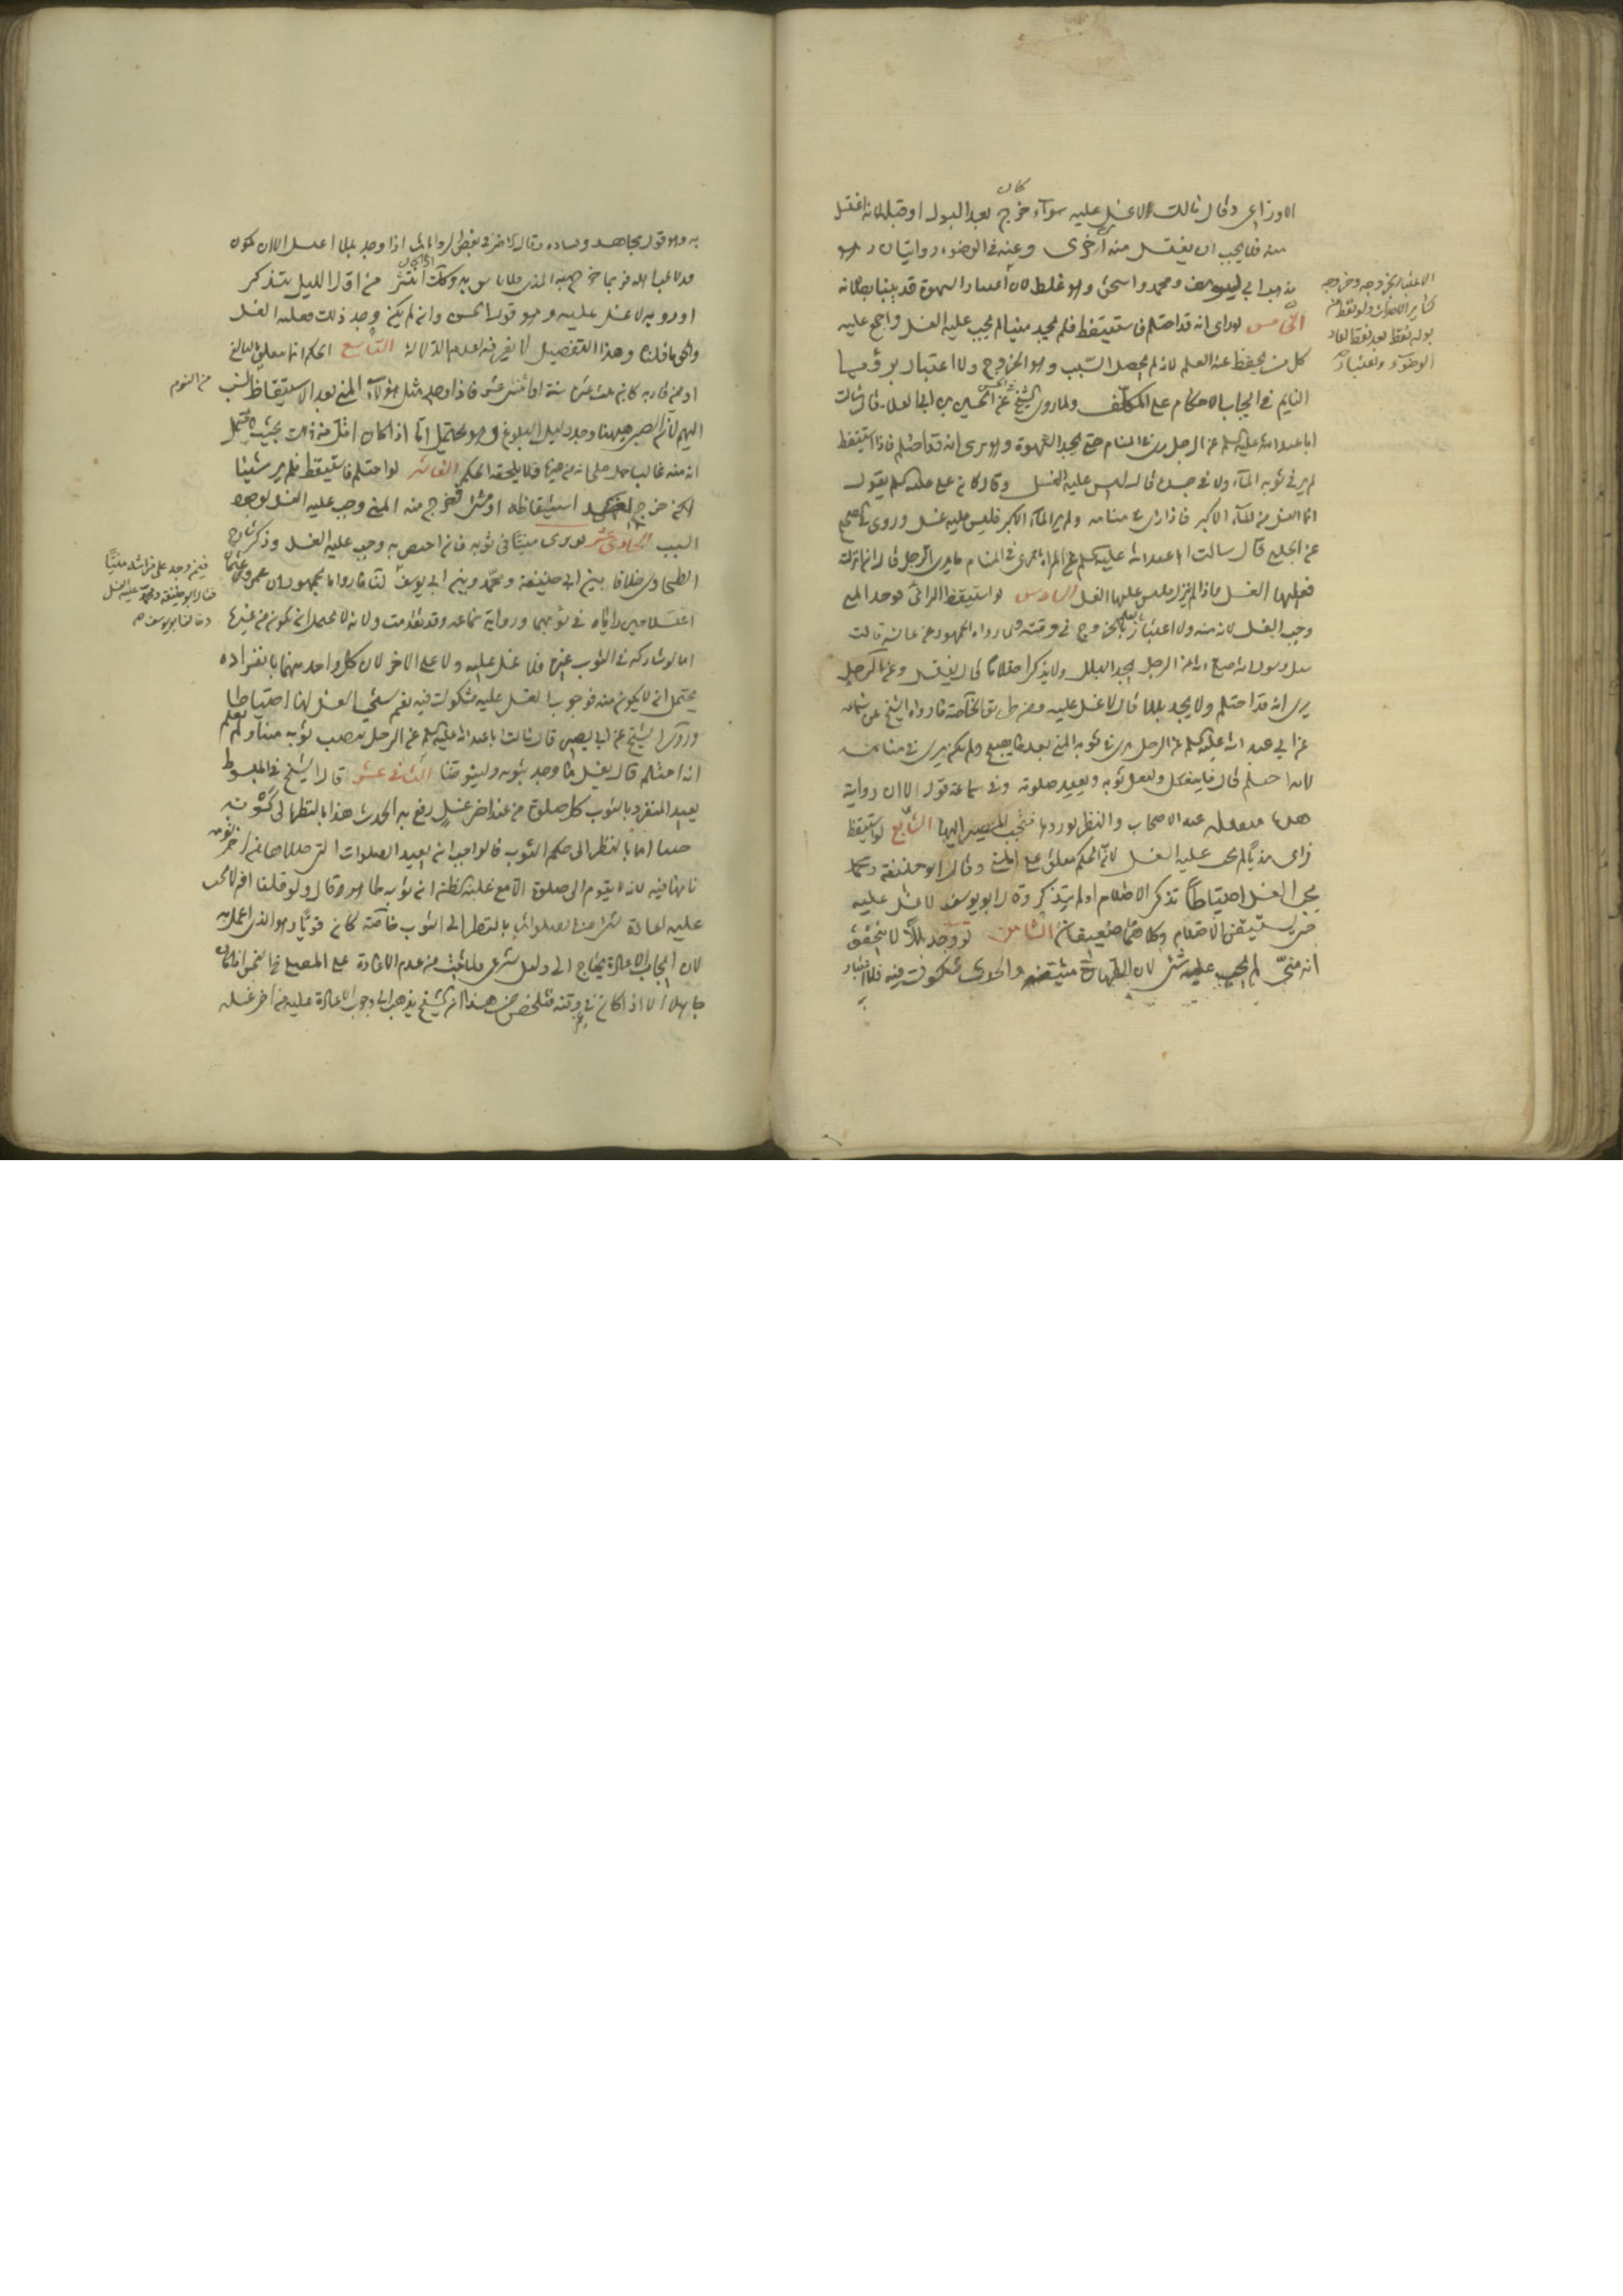 الاوزاعى وقال مالك لاغسل عليه سوآء كان خرج بعد البول او قبله لانه اغتسل
منه فلا يجب ان يغتسل منه اخرى وعنه فى الوضوء روايتان وهو
مذهب ابى يوسف ومحمد واسحق وهو غلط لان اعتبار الشهوة قد بينا بطلانه
الخامس لو راى انه قد احتلم فاستيقظ فلم يجد منيا لم يجب عليه الغسل واجمع عليه
كل من يحفظ عنه العلم لانه لم يحصل السبب وهو الخروج ولا اعتبار برؤيا
النايم فى ايجاب الاحكام على المكلف ولما روى الشيخ فى الحسن عن الحسين بن ابى العلا قال سالت
ابا عبد الله عليه السلم عن الرجل يرى فى المنام حتى يجد الشهوة وهو يرى انه قد احتلم فاذا استيقظ
لم ير فى ثوبه المآء ولا فى جسده قال ليس عليه الغسل وقال كان على عليه السلم يقول
انما الغسل من المآء الاكبر فاذا راى فى منامه ولم ير المآء الاكبر فليس عليه غسل وروى فى الصحيح
عن الحلبى قال سالت ابا عبد الله عليه السلم عن المراة ترى فى المنام ما يرى الرجل قال ان انزلت
فعليها الغسل واذا لم تنزل فليس عليها الغسل السادس لو استيقظ الرائى فوجد المنى
وجب الغسل لانه منه ولا اعتبار بالعلم بالخروج فى وقته ولما رواه الجمهور عن عائشة قالت
سئل رسول الله صلع عن الرجل يجد البلل ولا يذكر احتلاما قال يغتسل وعن الرجل
يرى انه قد احتلم ولا يجد بللا قال لا غسل عليه ومن طريق الخاصة ما رواه الشيخ عن سماعه
عن ابى عبد الله عليه السلم عن الرجل يرى فى ثوبه المنى بعد ما يصبح ولم يكن يرى فى منامه
انه احتلم قال فليغتسل وليغسل ثوبه ويعيد صلوته وفى سماعة قول الا ان روايته
هذه معمول عند الاصحاب والنظر يوردها فيجب المصير اليها السابع لو استيقظ
فراى مذيا لم يجب عليه الغسل لان الحكم معلق على المنى وقال ابو حنيفة ومحمد
يجب الغسل احتياطا تذكر الاحتلام او لم يتذكر وقال ابو يوسف لا غسل عليه
حتى يستيقن الاحتلام وكلاهما ضعيفان الثامن لو وجد بللا لا يتحقق
انه منى لم يجب عليه شئ لان الطهارة متيقنة والحدث مشكوك فيه فلا اعتبار
الاعتبار بخروجه وخروجه
كساير الاحداث ولو تقطر من
بوله نقطا بعد نقطا لعاد
الوضوء ولاعتبار
به وهو قول مجاهد وقتاده وقال احمد فى بعض الروايات اذا وجد بللا اغتسل الا ان يكون
وكانت انتشر من اول الليل بتذكر
او روية لا غسل عليه وهو قول الحسن وان لم يكن وجد ذلك فعليه الغسل
والحق ما قلناه وهذا التفصيل لا نعرفه لعدم الدلالة التاسع الحكم انما معلق بالبالغ
او من قاربه كابن ثلث عشرة سنة او اثنتى عشر فاذا وجد مثل هؤلاء المنى بعد الاستيقاظ
من النوم
انه منه غالبا فلا يلحقه الحكم العاشر لو احتلم فاستيقظ فلم ير شيئا
لكن خرج بعد استيقاظه او مشى فخرج منه المنى وجب عليه الغسل لوجود
السبب الحادى عشر لو راى منيا فى ثوبه فان اختص به وجب عليه الغسل وذكر
الطحاوى خلافا بين ابى حنيفة ومحمد وبين ابى يوسف لنا ما رواه الجمهور ان عمر وعثمان
اغتسلا حين راياه فى ثوبهما ورواية سماعه وقد تقدمت ولانه لا يحتمل ان يكون من غيره
اما لو شاركه فى الثوب غيره فلا غسل عليه ولا على الاخر لان كل واحد منهما بانفراده
يحتمل ان لا يكون منه فوجوب الغسل عليه مشكوك فيه نعم يستحب الغسل لهما احتياطا
وروى الشيخ عن ابى بصير قال سالت ابا عبد الله عليه السلم عن الرجل يصيب ثوبه منيا ولم يعلم
انه احتلم قال يغسل ما وجد بثوبه وليتوضا الثانى عشر قال الشيخ فى المبسوط
يعيد المنفرد بالثوب كل صلوة من عند اخر غسل رفع به الحدث هذا بالنظر الى كونه
جنبا اما بالنظر الى حكم الثوب قالواجب ان يعيد الصلوات التى صلاها من اخر نومه
نامها فيه لانه لا يقوم الى صلوة الا مع غلبة ظنه ان ثوبه طاهر وقال ولو قلنا انه لا يجب
عليه اعادة شئ من الصلوات بالنظر الى الثوب خاصة كان قويا وهو الذى اعمل به
لان ايجاب الاعادة يحتاج الى دليل شرعى ولما ثبت من عدم الاعادة على المصلى فى النجس اذا كان
جاهلا الا اذا كان فى وقته فتلخص من هذا ان الشيخ يذهب الى وجوب الاعادة عليه من اخر غسله
فيمن وجد على فراشه منيا
فقال ابو حنيفة ومحمد عليه الغسل
وخالف ابو يوسف